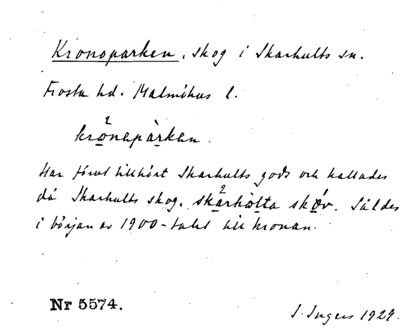 Kronoparken, skog i Skarhults sn.
Frosta hd. Malmöhus l.
krōnapàrkan.
Har förut tillhört Skarhults gods och kallades
då Skarhults skog, skarhòlta skóv. Såldes
i början av 1900-talet till kronan.
Nr 5574.
I. Ingers 1929.